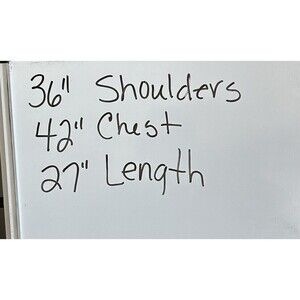 36" Shoulders
42" Chest
27" Length